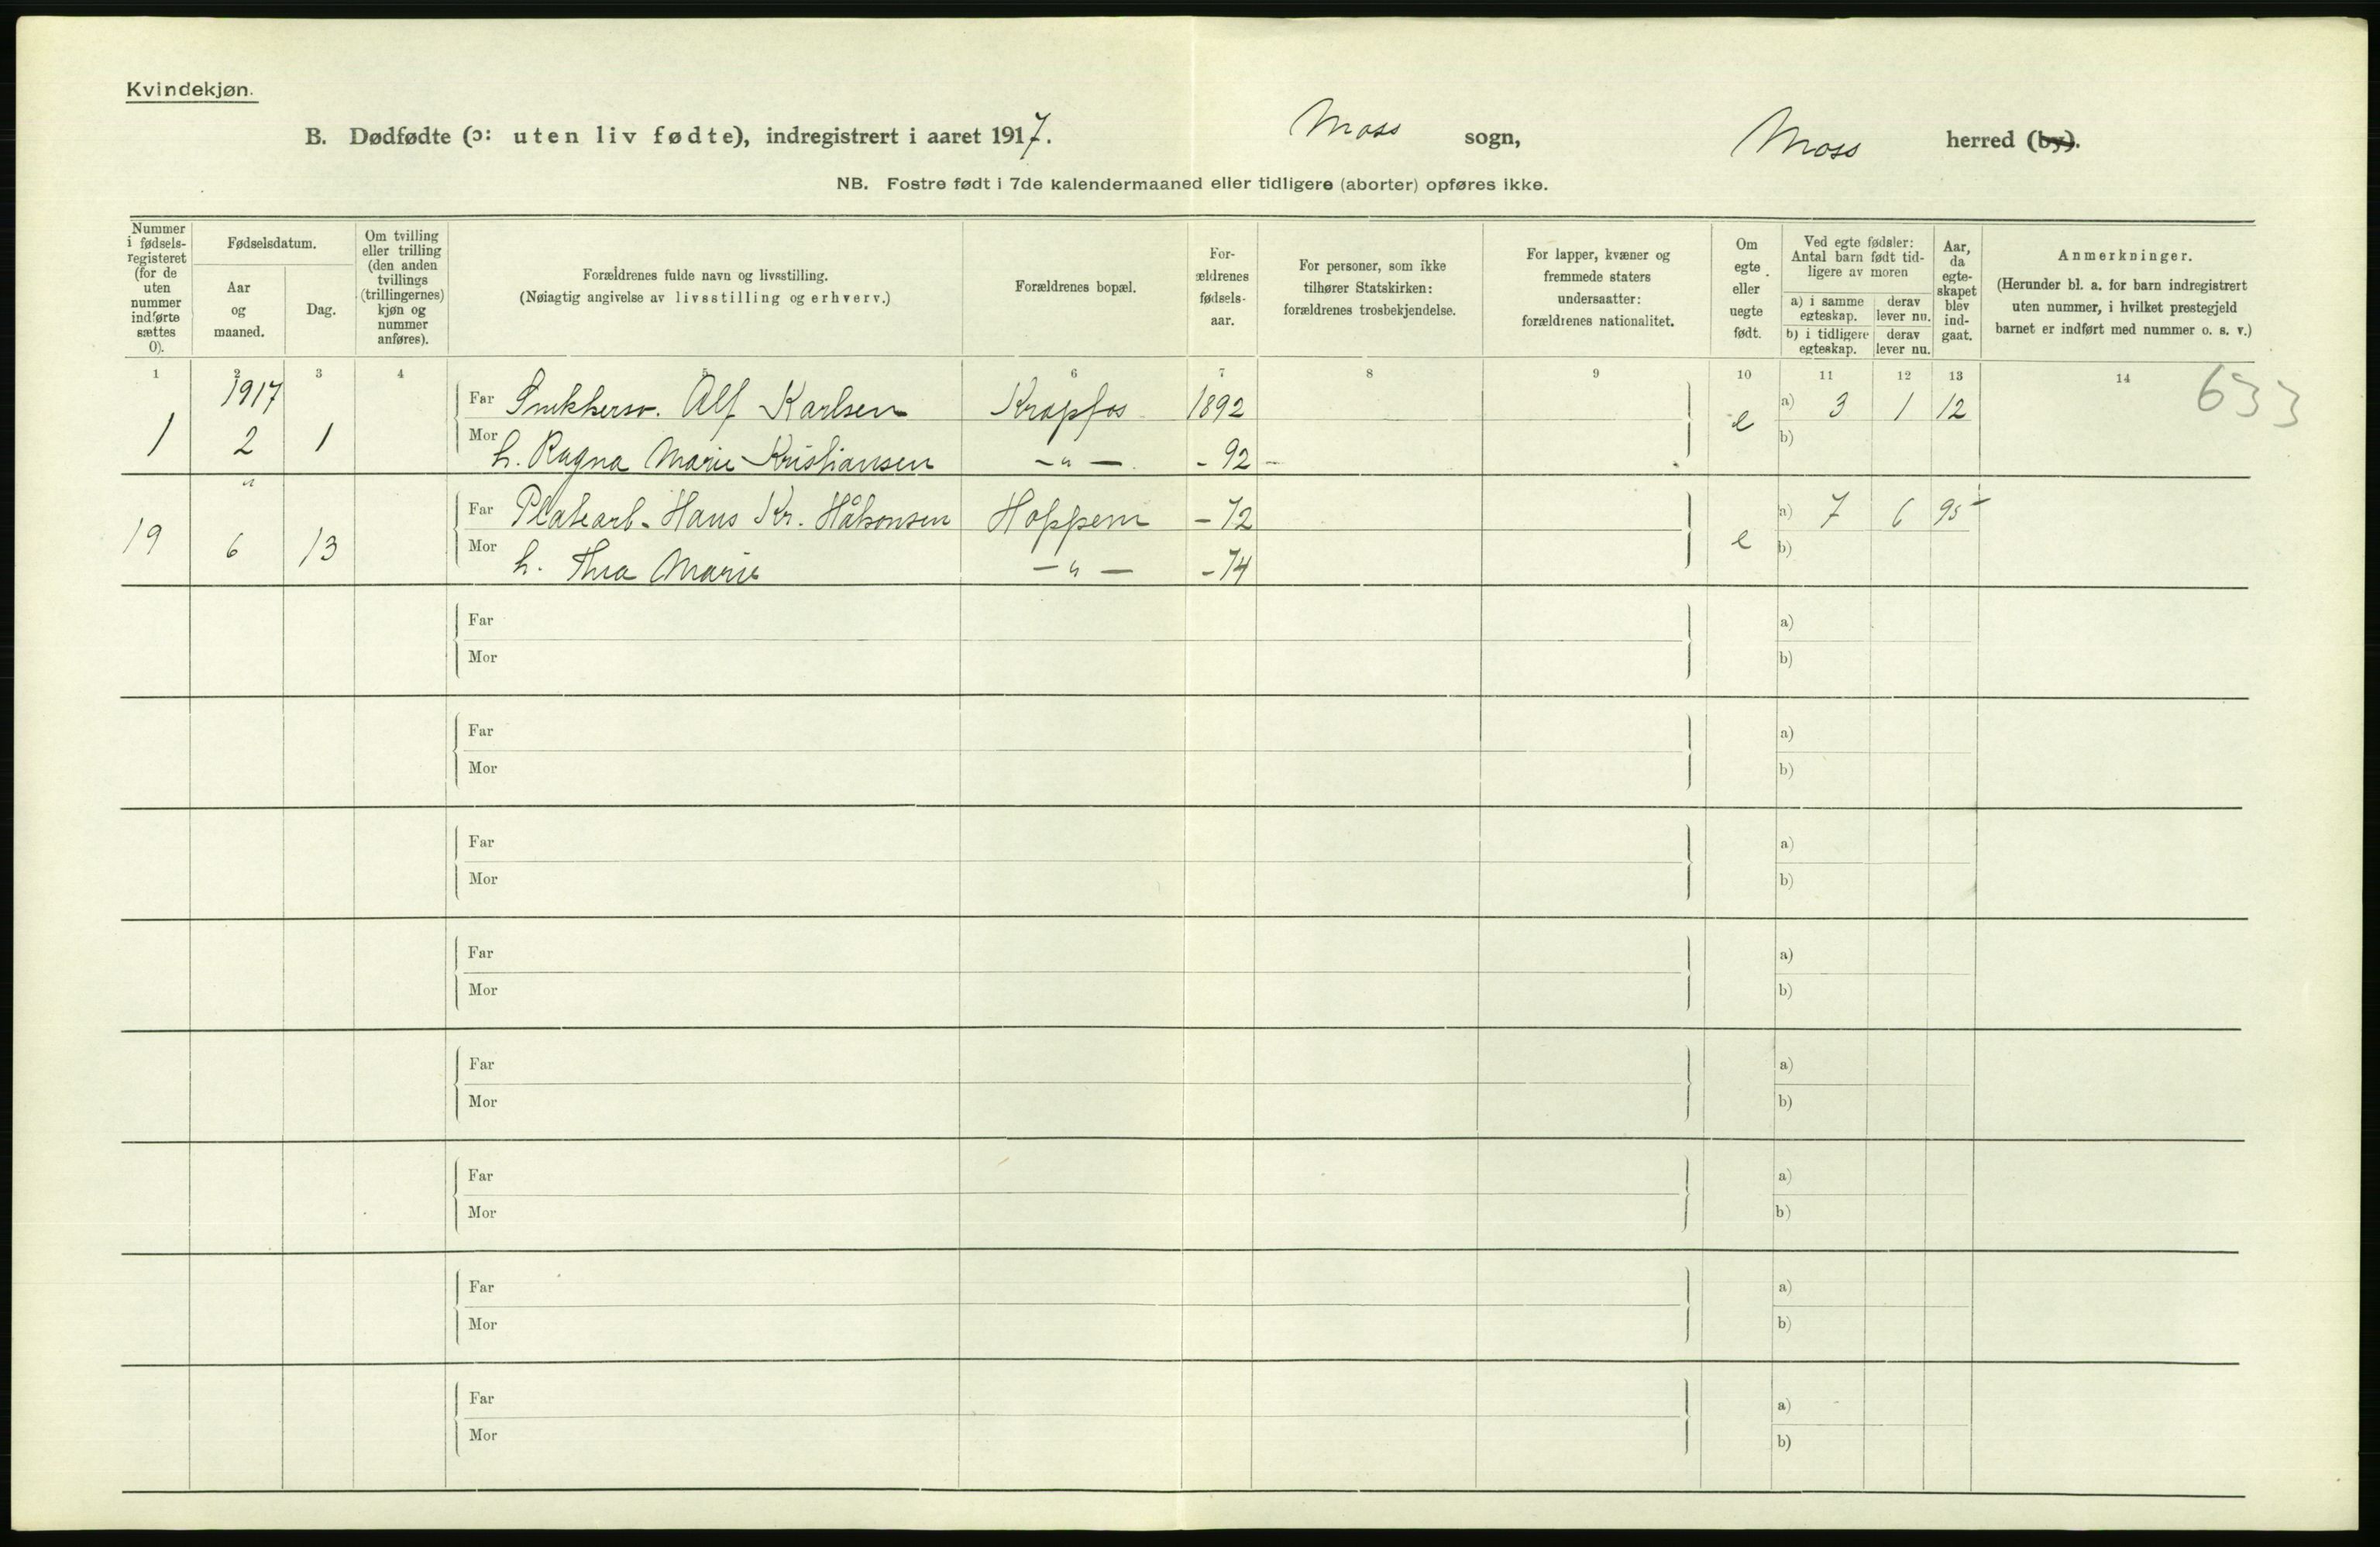 Kvindekjøn.
B. Dødfødte (ɔ: uten liv fødte), indregistrert i aaret 1917. Moss sogn, Moss herred (by).
NB. Fostre født i 7de kalendermaaned eller tidligere (aborter) opføres ikke.
Nummer i fødsels-registeret (for de uten nummer indførte sættes 0).
Fødselsdatum.
Aar og maaned.
Dag.
Om tvilling eller trilling (den anden tvillings (trillingernes) kjøn og nummer anføres).
Forældrenes fulde navn og livsstilling.
(Nøiagtig angivelse av livsstilling og erhverv.)
Forældrenes bopæl.
For-ældrenes fødsels-aar.
For personer, som ikke tilhører Statskirken: forældrenes trosbekjendelse.
For lapper, kvæner og fremmede staters undersaatter: forældrenes nationalitet.
Om egte eller uegte født.
Ved egte fødsler: Antal barn født tid-ligere av moren
a) i samme egteskap.
derav lever nu.
b) i tidligere egteskap.
derav lever nu.
Aar, da egte-skapet blev ind-gaat.
Anmerkninger.
(Herunder bl. a. for barn indregistrert uten nummer, i hvilket prestegjeld barnet er indført med nummer o. s. v.)
1 2 3 4 5 6 7 8 9 10 11 12 13 14
633
1917
Far Snekkersv. Alf Karlsen Krapfos 1892 a) 3 1 12
1 2 1 e
Mor h. Ragna Marie Kristiansen - " - - 92 - b)
"
Far Platearb. Hans Kr. Håkonsen Hoppern - 72 a) 7 6 95
19 6 13 e
Mor h. Thea Marie - " - - 74 b)
Far a)
Mor b)
Far a)
Mor b)
Far a)
Mor b)
Far a)
Mor b)
Far a)
Mor b)
Far a)
Mor b)
Far a)
Mor b)
Far a)
Mor b)